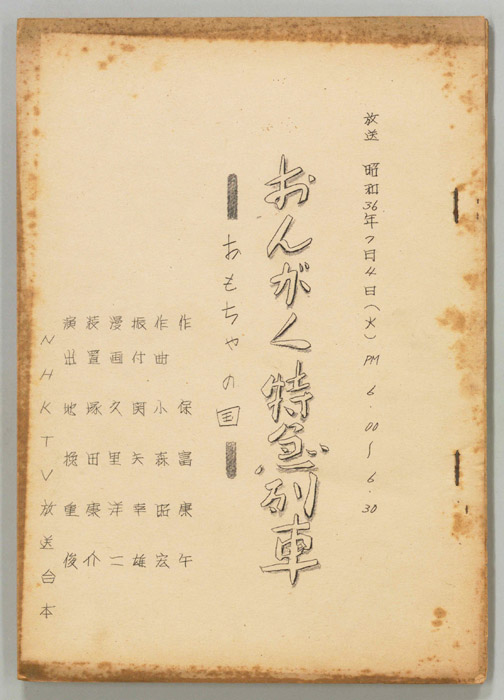 放送 昭和36年7月4日(火) PM 6.00〜6.30
おんがく特急列車
おもちゃの国
作 保富康午
作曲 小森昭宏
振付 関矢幸雄
漫画 久里洋二
装置 塚田康介
演出 地挽重俊
NHKTV放送台本